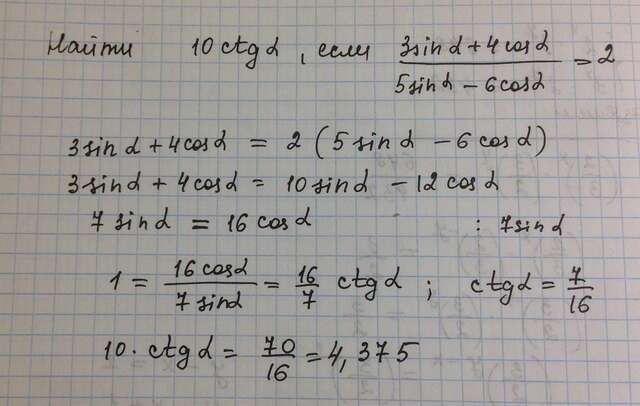 Найти 10 ctg α, если (3 sin α + 4 cos α)/(5 sin α − 6 cos α) = 2
3 sin α + 4 cos α = 2 (5 sin α − 6 cos α)
3 sin α + 4 cos α = 10 sin α − 12 cos α
7 sin α = 16 cos α : 7 sin α
1 = (16 cos α)/(7 sin α) = 16/7 ctg α ; ctg α = 7/16
10 · ctg α = 70/16 = 4,375